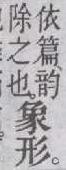 依篇韵
除之也。象形。